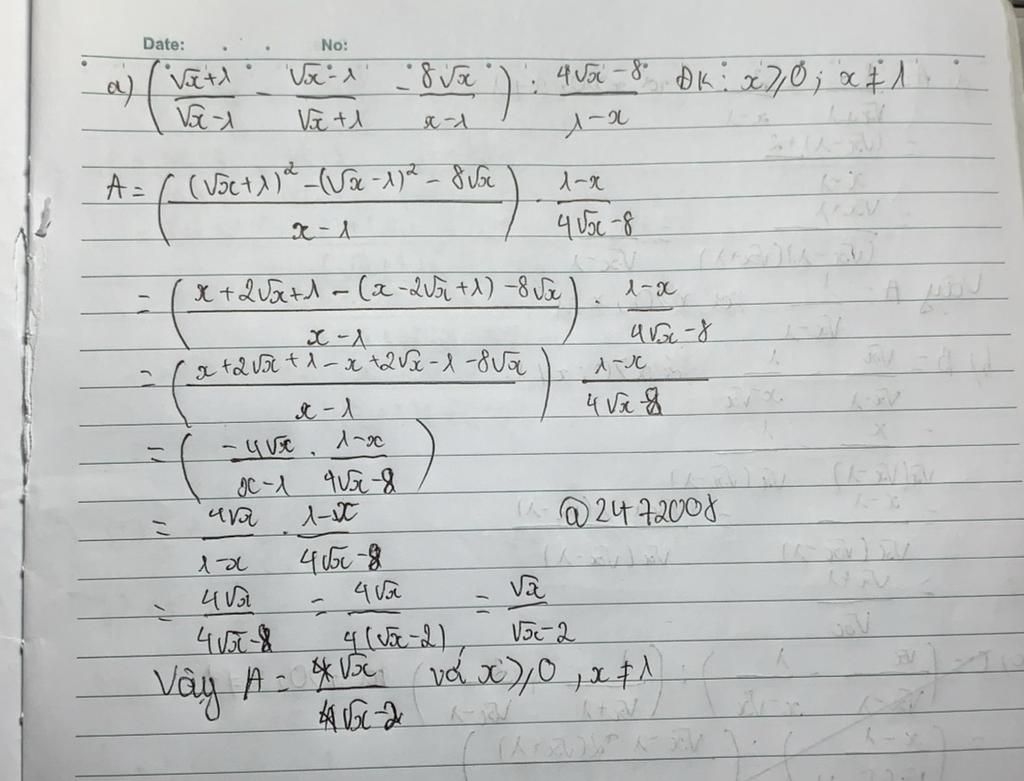 Date: . . No:
a) (\frac{√x+1}{√x-1} - \frac{√x-1}{√x+1} - \frac{8√x}{x-1}) : \frac{4√x-8}{1-x} ĐK: x≥0; x≠1
A = (\frac{(√x+1)² - (√x-1)² - 8√x}{x-1}) · \frac{1-x}{4√x-8}
= (\frac{x+2√x+1-(x-2√x+1)-8√x}{x-1}) · \frac{1-x}{4√x-8}
= (\frac{x+2√x+1-x+2√x-1-8√x}{x-1}) \frac{1-x}{4√x-8}
= (\frac{-4√x}{x-1} · \frac{1-x}{4√x-8})
= \frac{4√x}{1-x} · \frac{1-x}{4√x-8}
@2472008
= \frac{4√x}{4√x-8} = \frac{4√x}{4(√x-2)} = \frac{√x}{√x-2}
Vậy A = \frac{√x}{√x-2} với x≥0, x≠1